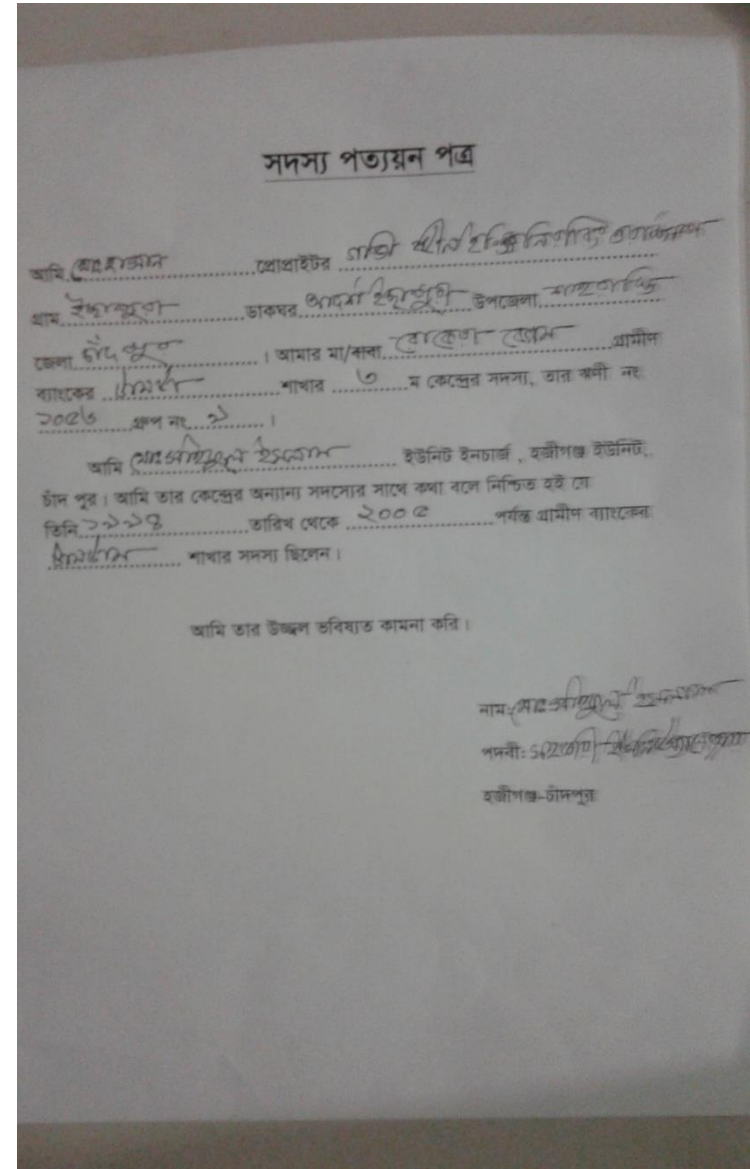 সদস্য পত্যয়ন পত্র
আমি মোঃ হাসান প্রোপ্রাইটর
গ্রাম ইছাপুরা ডাকঘর আদর্শ ইছাপুরা উপজেলা শাহরাস্তি
জেলা চাঁদপুর । আমার মা/বাবা রোকেয়া বেগম গ্রামীন
ব্যাংকের শাখার ৩ ম কেন্দ্রের সদস্য, তার ঋনী নং
২০৫৬ গ্রুপ নং ১ ।
আমি মোঃ ইসলাম ইউনিট ইনচার্জ , হজীগঞ্জ ইউনিট,
চাঁদ পুর। আমি তার কেন্দ্রের অন্যান্য সদস্যের সাথে কথা বলে নিশ্চিত হই যে
তিনি ১৯৯৪ তারিখ থেকে ২০০৫ পর্যন্ত গ্রামীণ ব্যাংকের
শাখার সদস্য ছিলেন।
আমি তার উজ্জ্বল ভবিষ্যত কামনা করি।
নাম: মোঃ ইসলাম
পদবী:
হজীগঞ্জ-চাঁদপুর